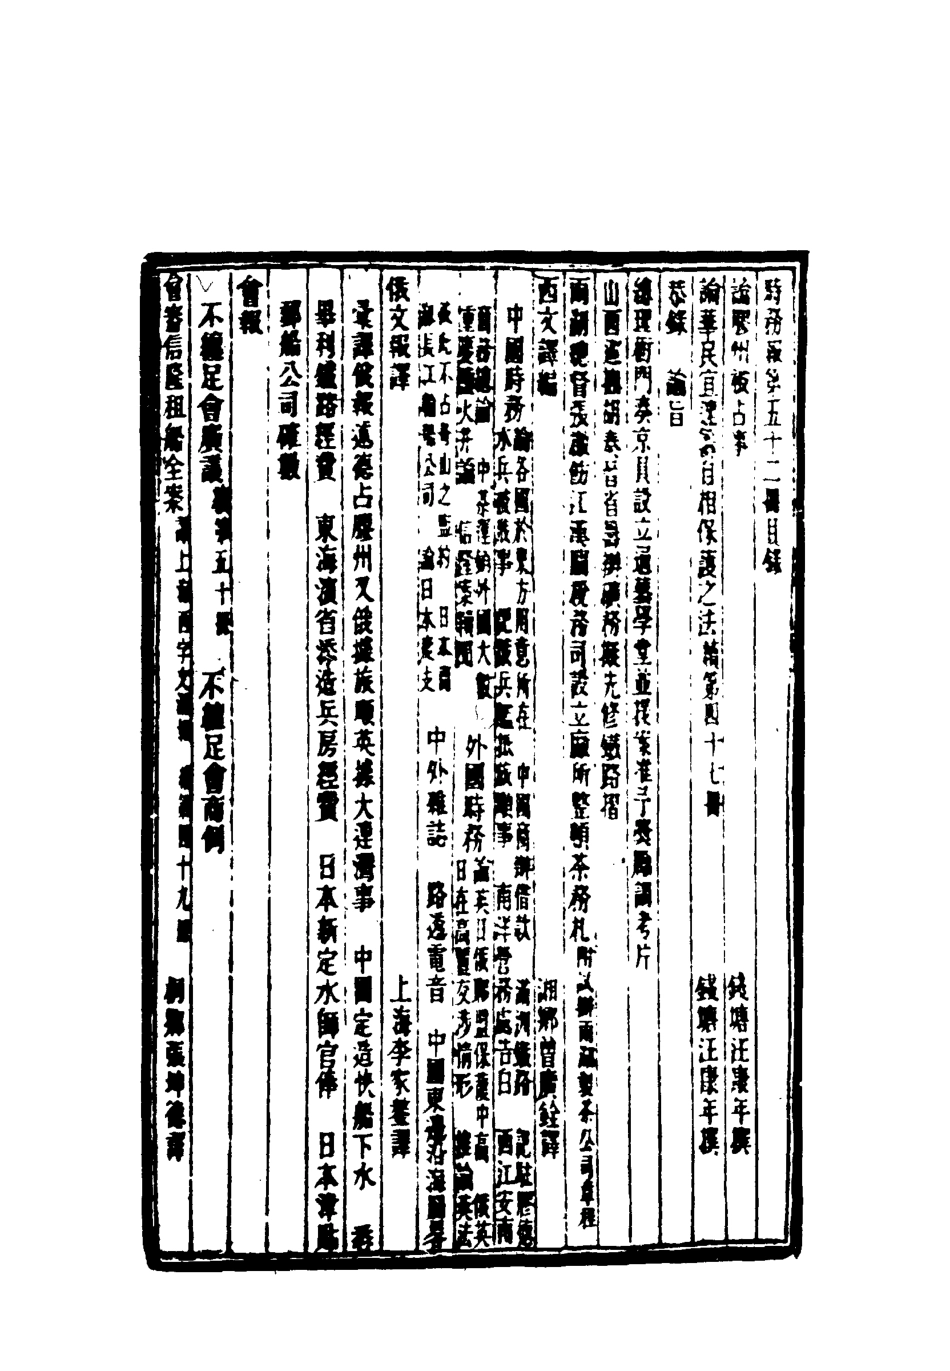 時務報第五十二冊目錄
論膠州被占事 錢塘汪康年撰
論華民宜速籌自相保護之法續第四十七冊 錢塘汪康年撰
恭錄 諭旨
總理衙門奏京員設立通藝學堂並援案准予獎勵調考片
山西巡撫胡奏晉省籌辦礦務擬先修鐵路摺
兩湖總督張札飭江漢關稅務司設立廠所整頓茶務札附試辦兩湖製茶公司章程
西文譯編 湘鄉曾廣銓譯
中國時務 論各國於東方用意所在 中國商辦借款 滿洲鐵路 記駐膠德
水兵被戕事 俄駐旅順事 南洋營務處告白 西江安南
商務總論 中茶運銷外國大數 外國時務 論英日俄聯盟保護中高 俄英
重慶火井論 信隆案 日在高麗交涉情形 推論英法
不占舟山之 日本
長江輪船公司 論日本度支 中外雜誌 路透電音 中國東邊沿海圖
俄文報譯 上海李家鏊譯
彙譯俄報述德占膠州又俄據旅順英據大連灣事 中國定造快船下水
畢利鐵路經費 東海濱省添造兵房經費 日本新定水師官俸 日本
郵船公司確數
會報
不纏足會廣議 五十冊 不纏足會商例
會審信隆租船全案 上海西字 續第四十九冊 桐鄉張坤德譯